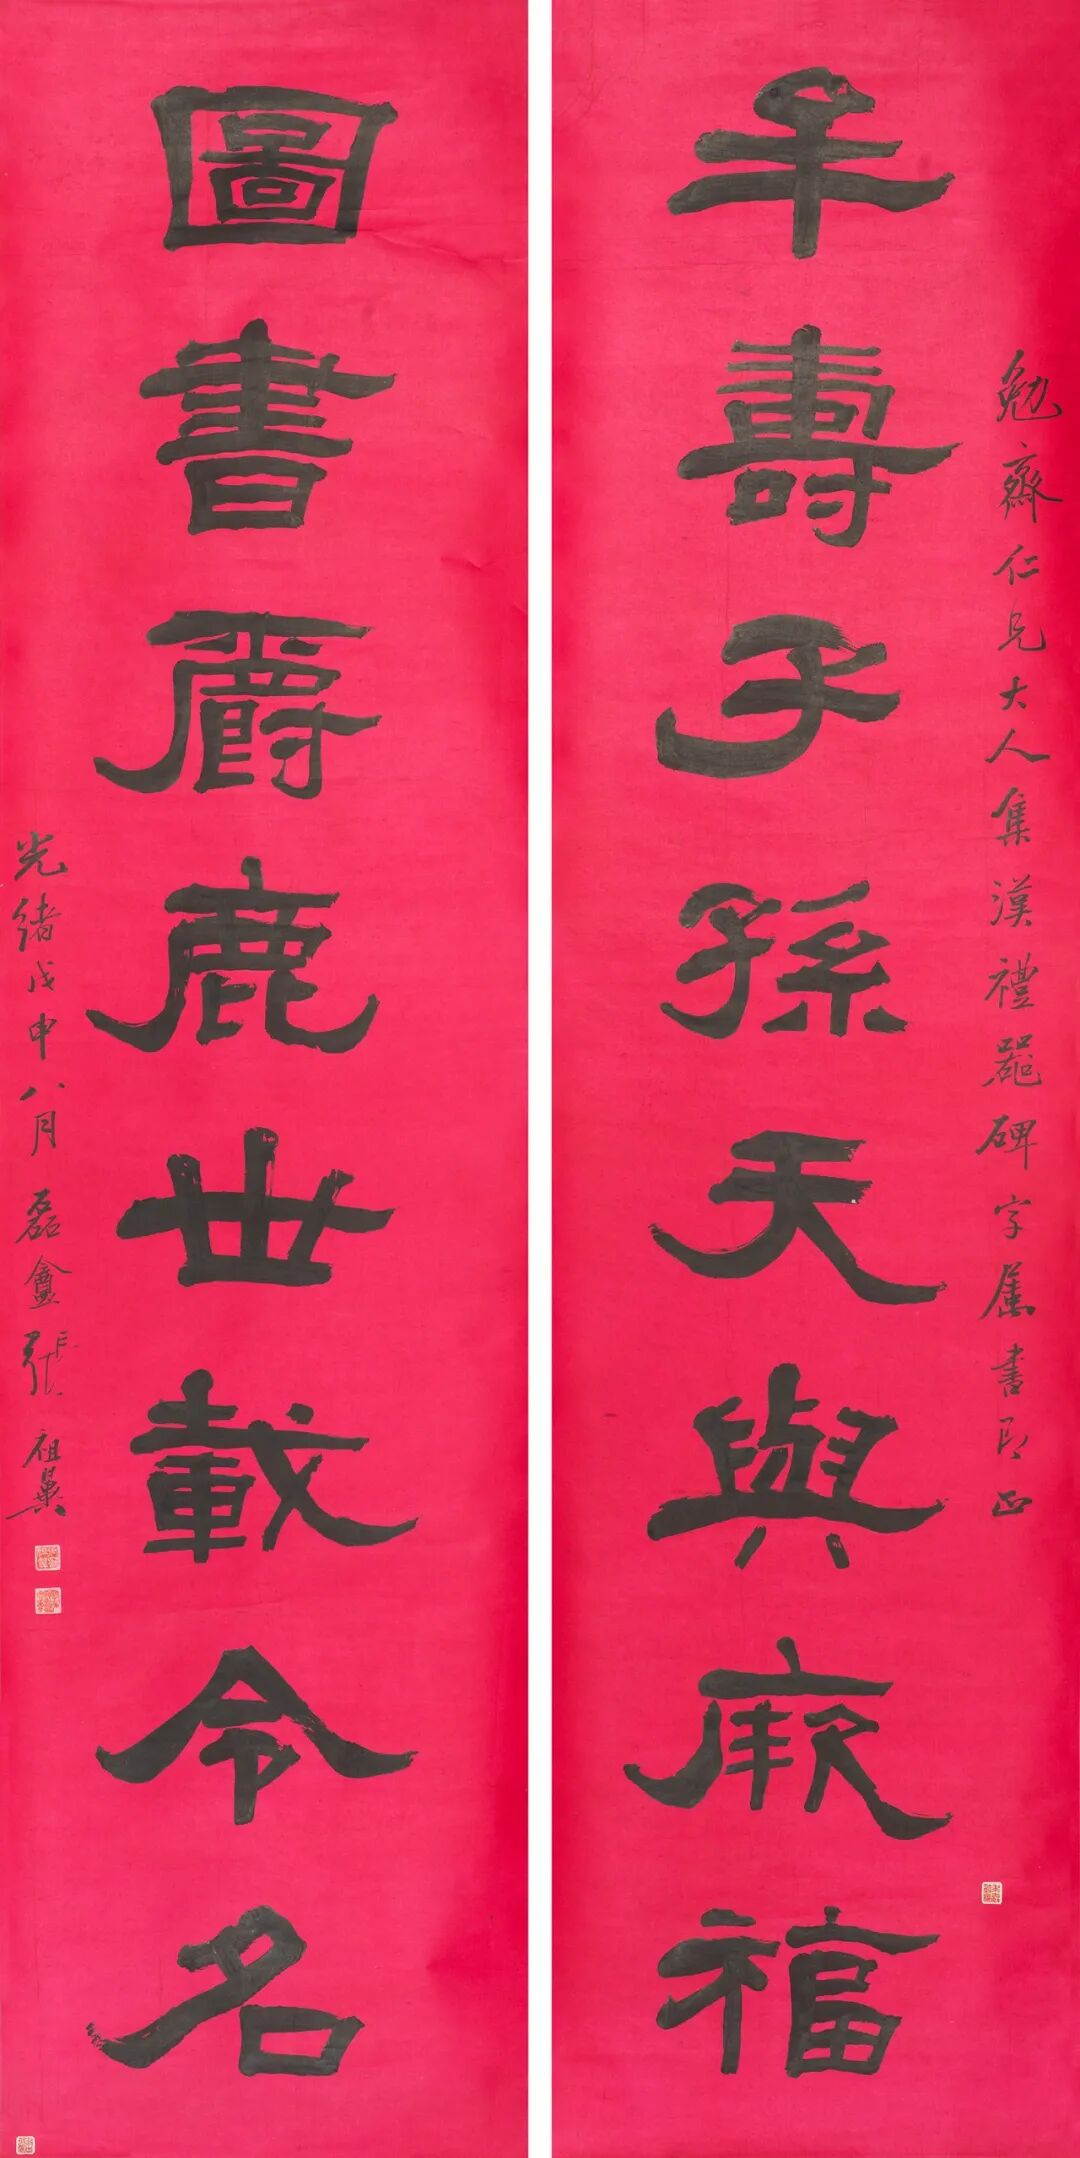 勉齋仁兄大人集漢禮器碑字屬書即正
牟壽子孫天與厥福
圖書爵鹿世載令名
光緒戊申八月磊盦張祖翼